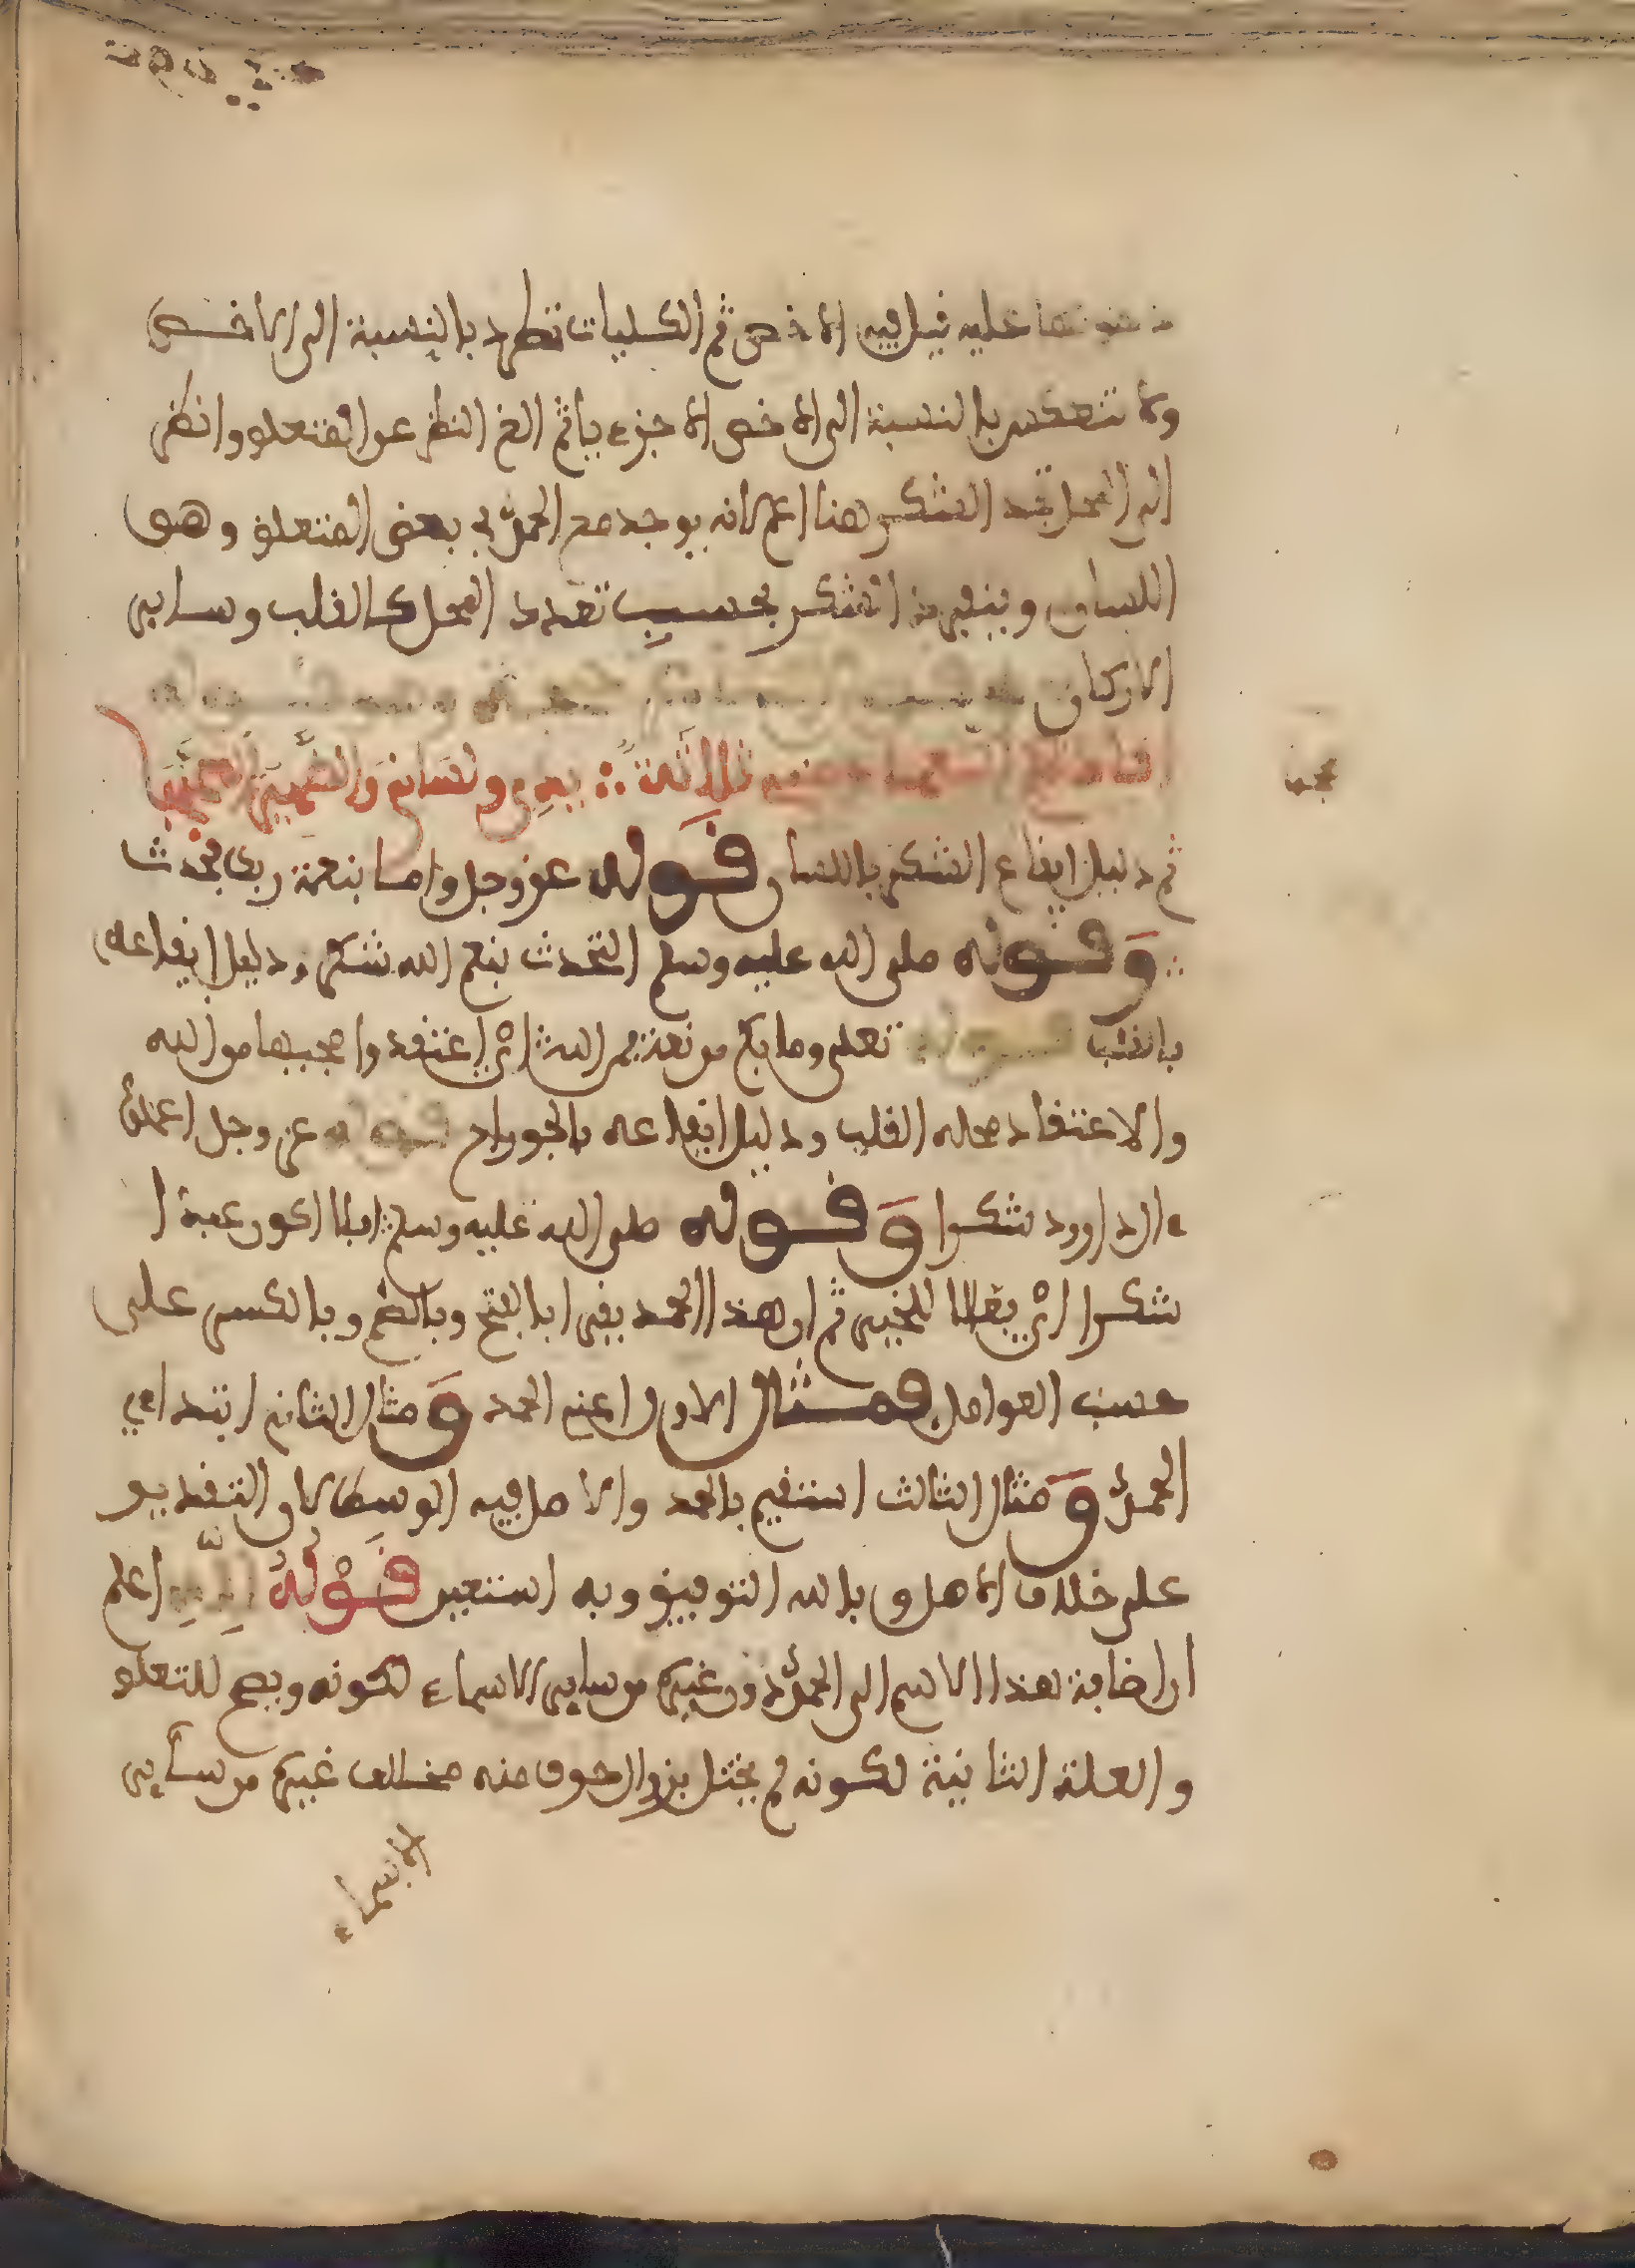 عليه قيل فيه الاخص ثم الكليات تطرد بالنسبة الى الاخص
ولا تنعكس بالنسبة الى الاخص الا جزءيا ثم الغ النظر عن المتعلق وانظر
الى المحل تجد الشكر هنا اعم لانه يوجد مع الحمد في بعض المتعلق وهو
اللسان وينفرد الشكر بحسب تعدد المحل كالقلب وساير
الاركان
افادتكم النعماء مني ثلاثة يدي ولساني والضمير المحجبا
ثم دليل ايقاع الشكر باللسان قوله عز وجل واما بنعمة ربك فحدث
وقوله صلى الله عليه وسلم التحدث بنعم الله شكر ودليل ايقاعه
بالقلب قوله تعلى وما بكم من نعمة فمن الله اي اعتقدوا من الله
والاعتقاد محله القلب ودليل ايقاعه بالجوارح قوله عز وجل اعملوا
ءال داوود شكرا وقوله صلى الله عليه وسلم افلا اكون عبدا
شكورا اي ثم ان هذا الحمد يقرا بالفتح وبالضم وبالكسر على
حسب العوامل فمثال الاول الحمد ومثال الثاني ابتداءي
الحمد ومثال الثالث استفتح بالحمد والاصل فيه الوسط لان التقديم
على خلاف الاصل وبالله التوفيق وبه استعين قوله لله اعلم
ان اضافة هذا الاسم الى الحمد دون غيره من ساير الاسماء لكونه وضع للتعلق
والعلة الثانية لكونه لم يختل بزوال حرف منه بخلاف غيره من ساير
الاسماء